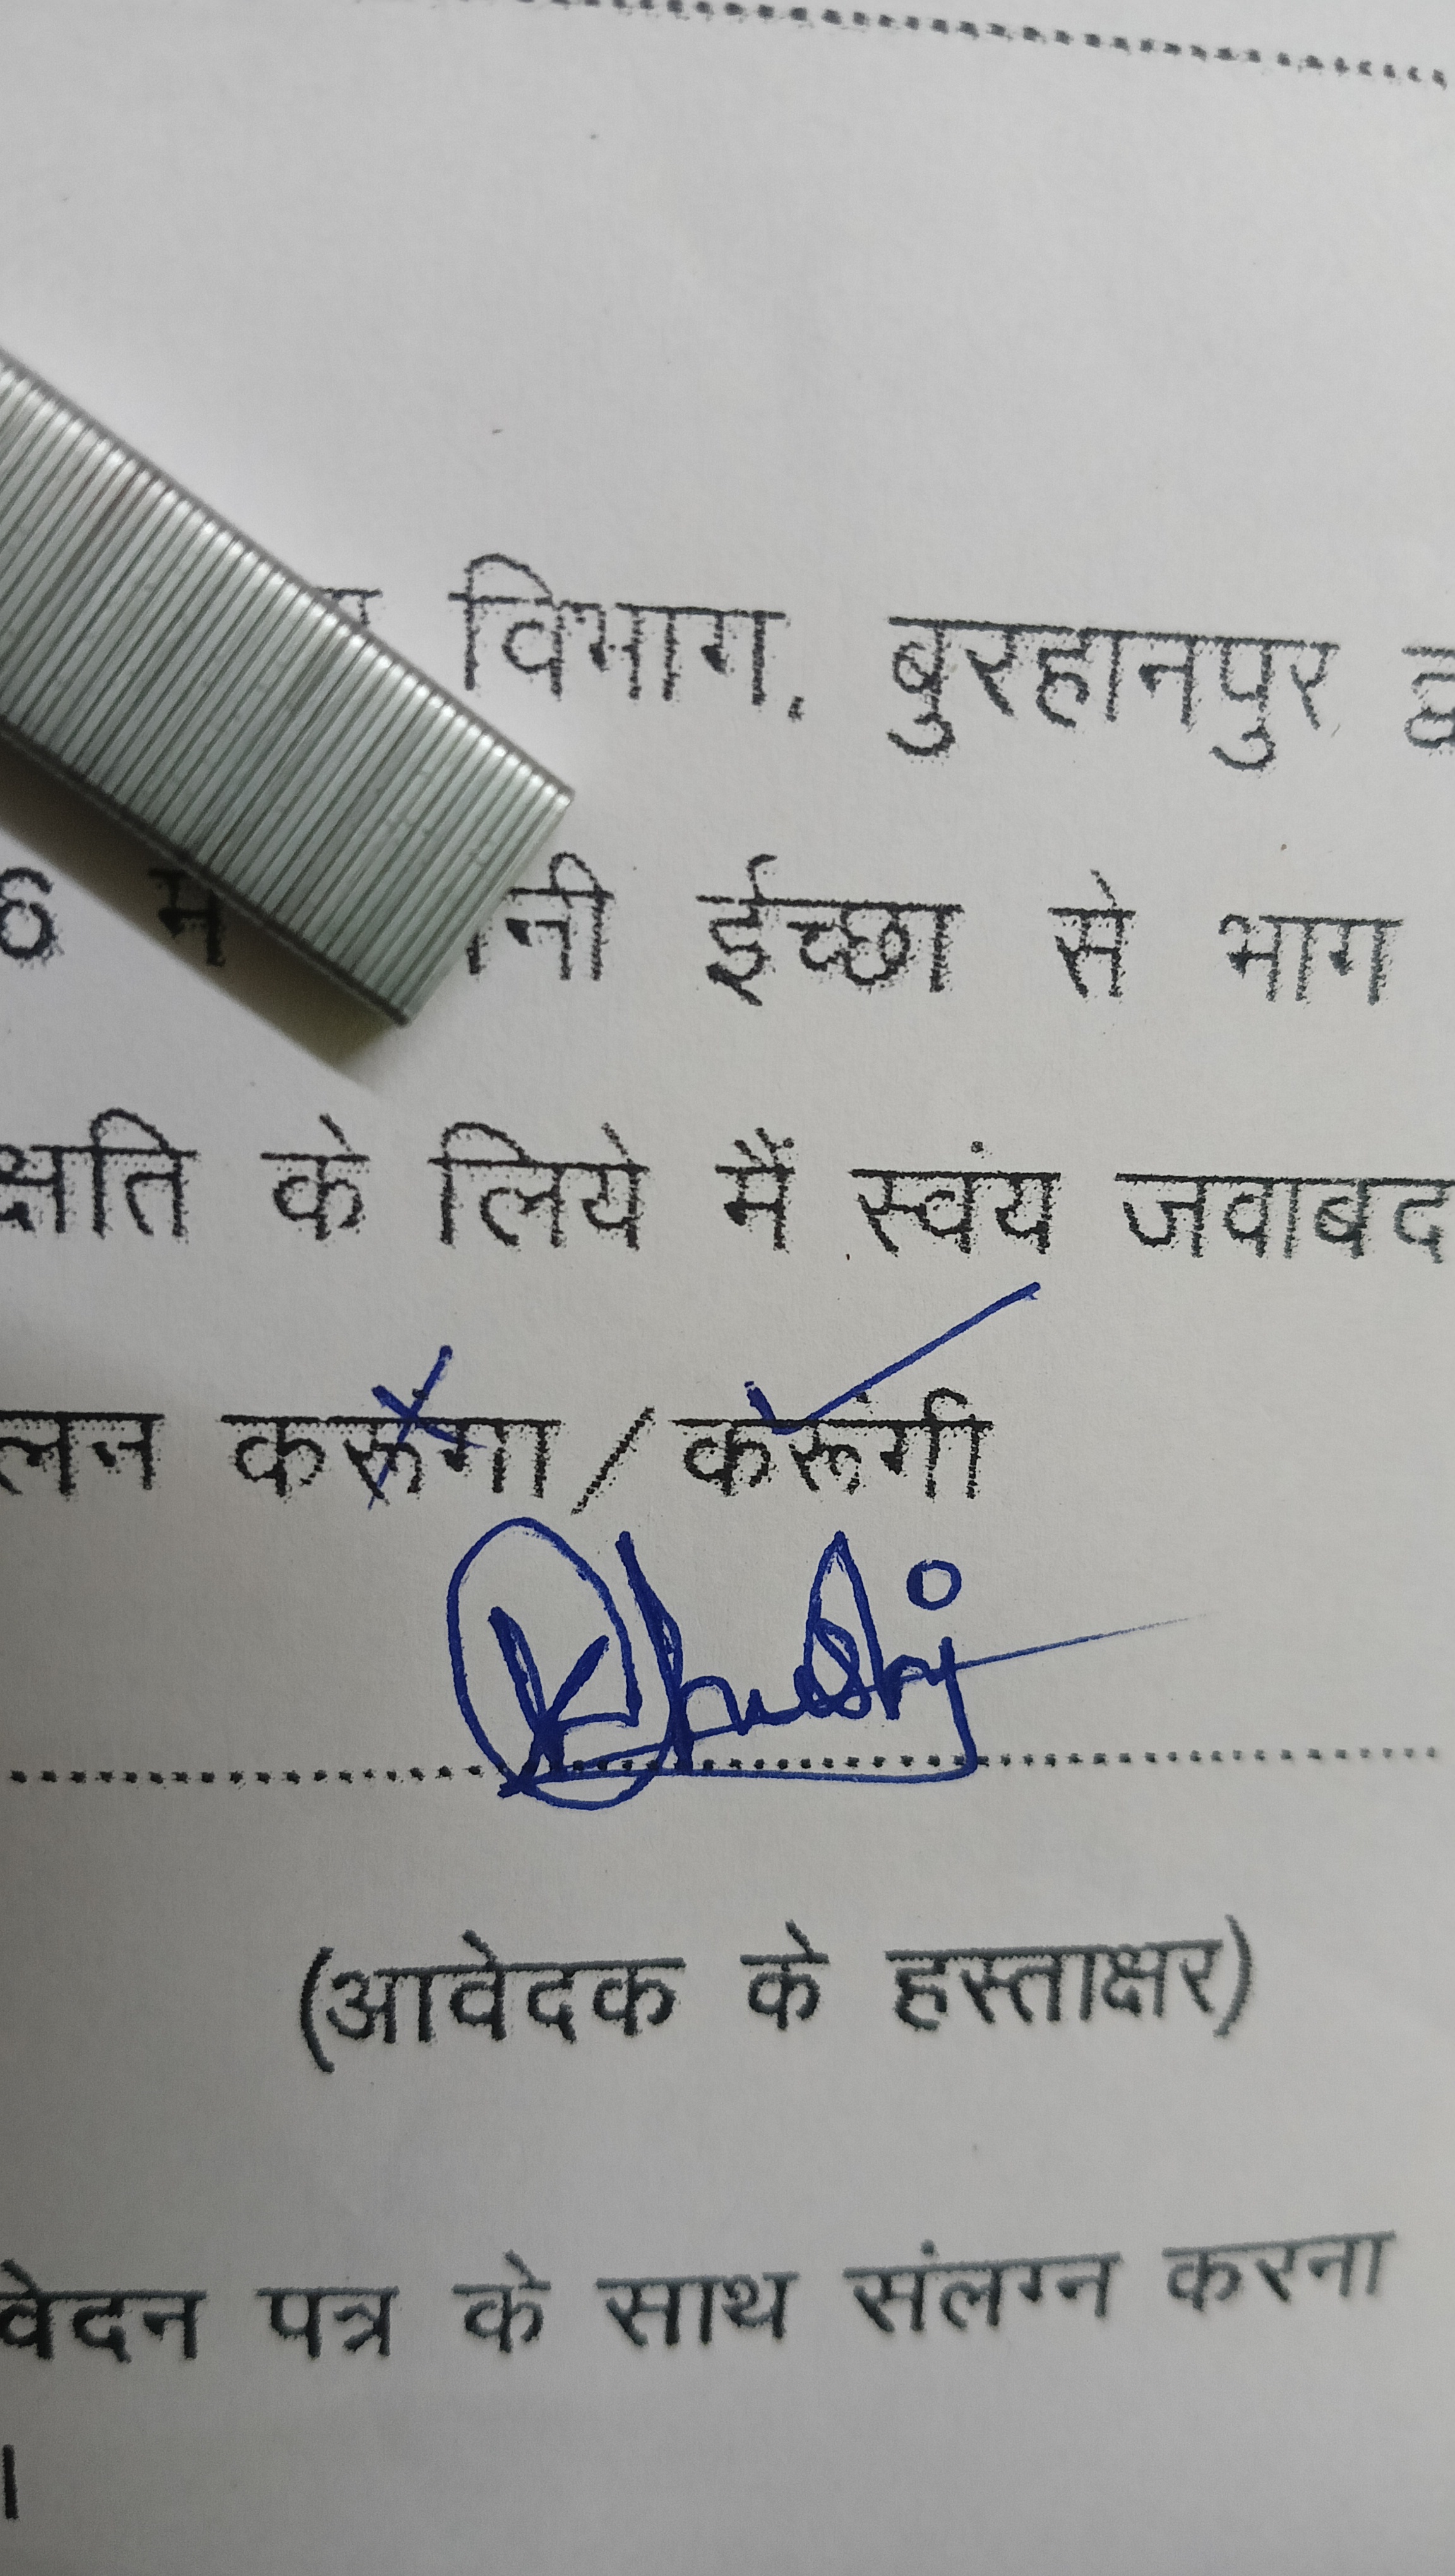 विभाग, बुरहानपुर
6 नी ईच्छा से भाग
क्षति के लिये मैं स्वंय जवाबद
लन करूँगा / करूंगी
Khushi
(आवेदक के हस्ताक्षर)
वेदन पत्र के साथ संलग्न करना
।